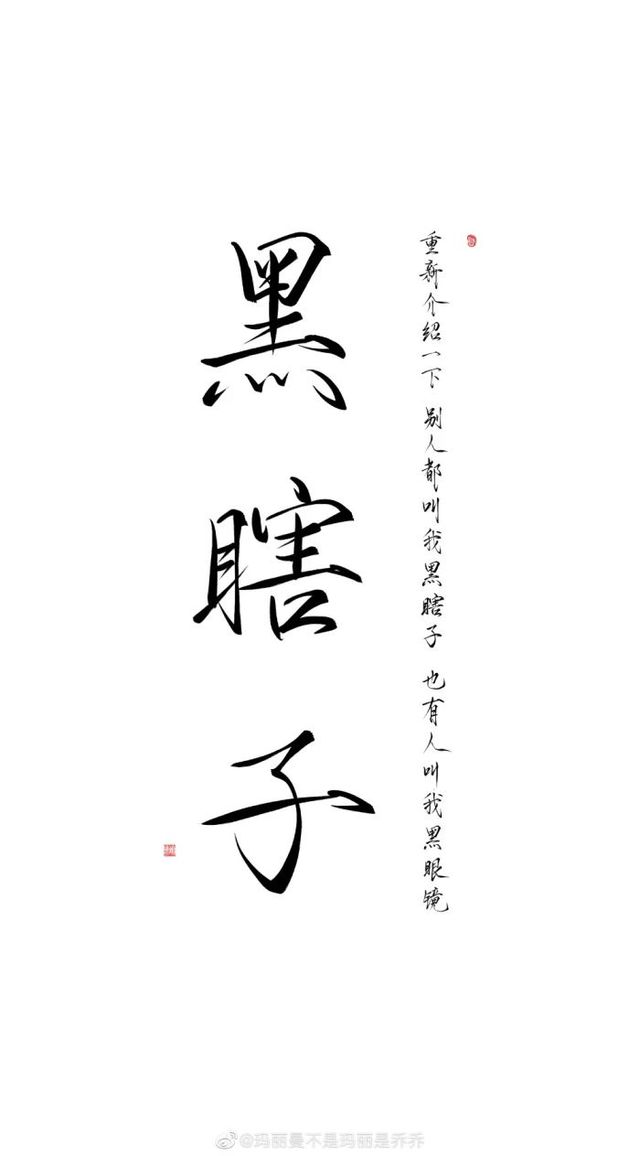 重新介绍一下 别人都叫我黑瞎子 也有人叫我黑眼镜
黑瞎子
@玛丽曼不是玛丽是乔乔